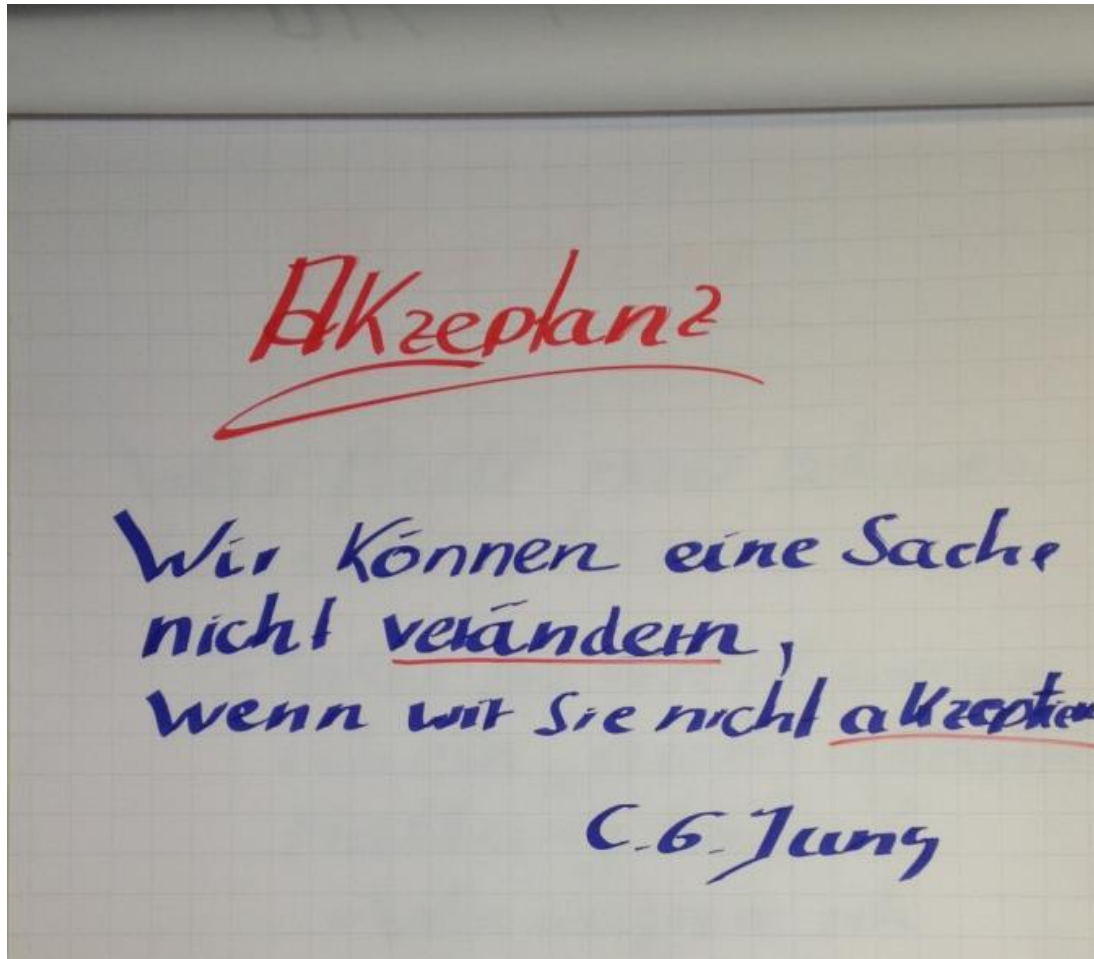 Akzeptanz
Wir können eine Sache
nicht verändern,
wenn wir sie nicht akzeptier
C.G. Jung